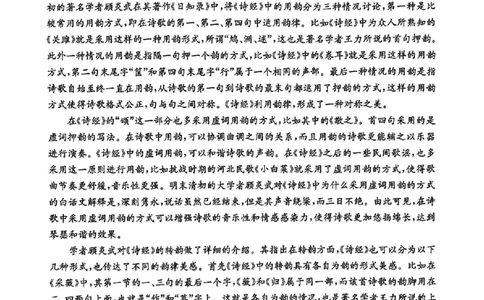 初的著名学者顾炎武在其著作《日知录》中,将《诗经》中的用韵分为三种情况讨论,第一种是比
较常用的用韵方式,即在诗歌的第一、第二、第四句中运用韵律。比如《诗经》中为众人所熟知的
《关雎》就是采用这样的一种用韵形式,所谓“鸠、洲、逑”,这也是著名学者王力所说的首句押韵。
此外一种情况的用韵是指隔一句押一个韵的方式,比如《诗经》中的《卷耳》就是采用这样的用韵
方式,第二句末尾字“筐”和第四句末尾字“行”属于一个相同的声部。最后一种情况的用韵是指
诗歌自始至终一直在用韵,从诗歌的第一句到诗歌的最末句都运用了押韵的方式,这样的用韵
方式使得诗歌格式公正,句与句之间对称。《诗经》利用韵律,形成了一种对称之美。
在《诗经》的“颂”这一部分也多采用虚词用韵的方式,比如其中的《敬之》。首四句采用的是
虚词押韵的写法。在诗歌中用韵,可以协调曲调之间的关系,而且用韵的诗歌更能辅之以乐器
进行演奏。《诗经》中的虚词用韵,可以和谐诗歌的声韵。在《诗经》之后的一些民间歌谣,也多
采用这一原则进行用韵,比如抗战时期的河北民歌《小白菜》就采用了虚词用韵的方式,使得歌
曲节奏更舒缓,音乐性更强。明末清初的大学者顾炎武对《诗经》中为什么采用虚词用韵的方式
的白话文解释是,深刻隽永,说话虽然已经结束,但是其声音绕梁,而三日不绝。由此可见,在诗
歌中采用虚词用韵的方式可以增强诗歌的音乐性和情感感染力,使得诗歌更加悠扬绵长,达到
琴瑟和谐的效果。
学者顾炎武对《诗经》的转韵做了详细的介绍。其指出在转韵方面,《诗经》也可以分为以下
几种形式,也传达了不同的韵律美感。首先《诗经》中的转韵具有各自为韵的形式美感。比如在
《采薇》中,其第一节的一、三句的最后一个字,《薇》和《归》属于同一部,而该首诗歌的韵脚用在